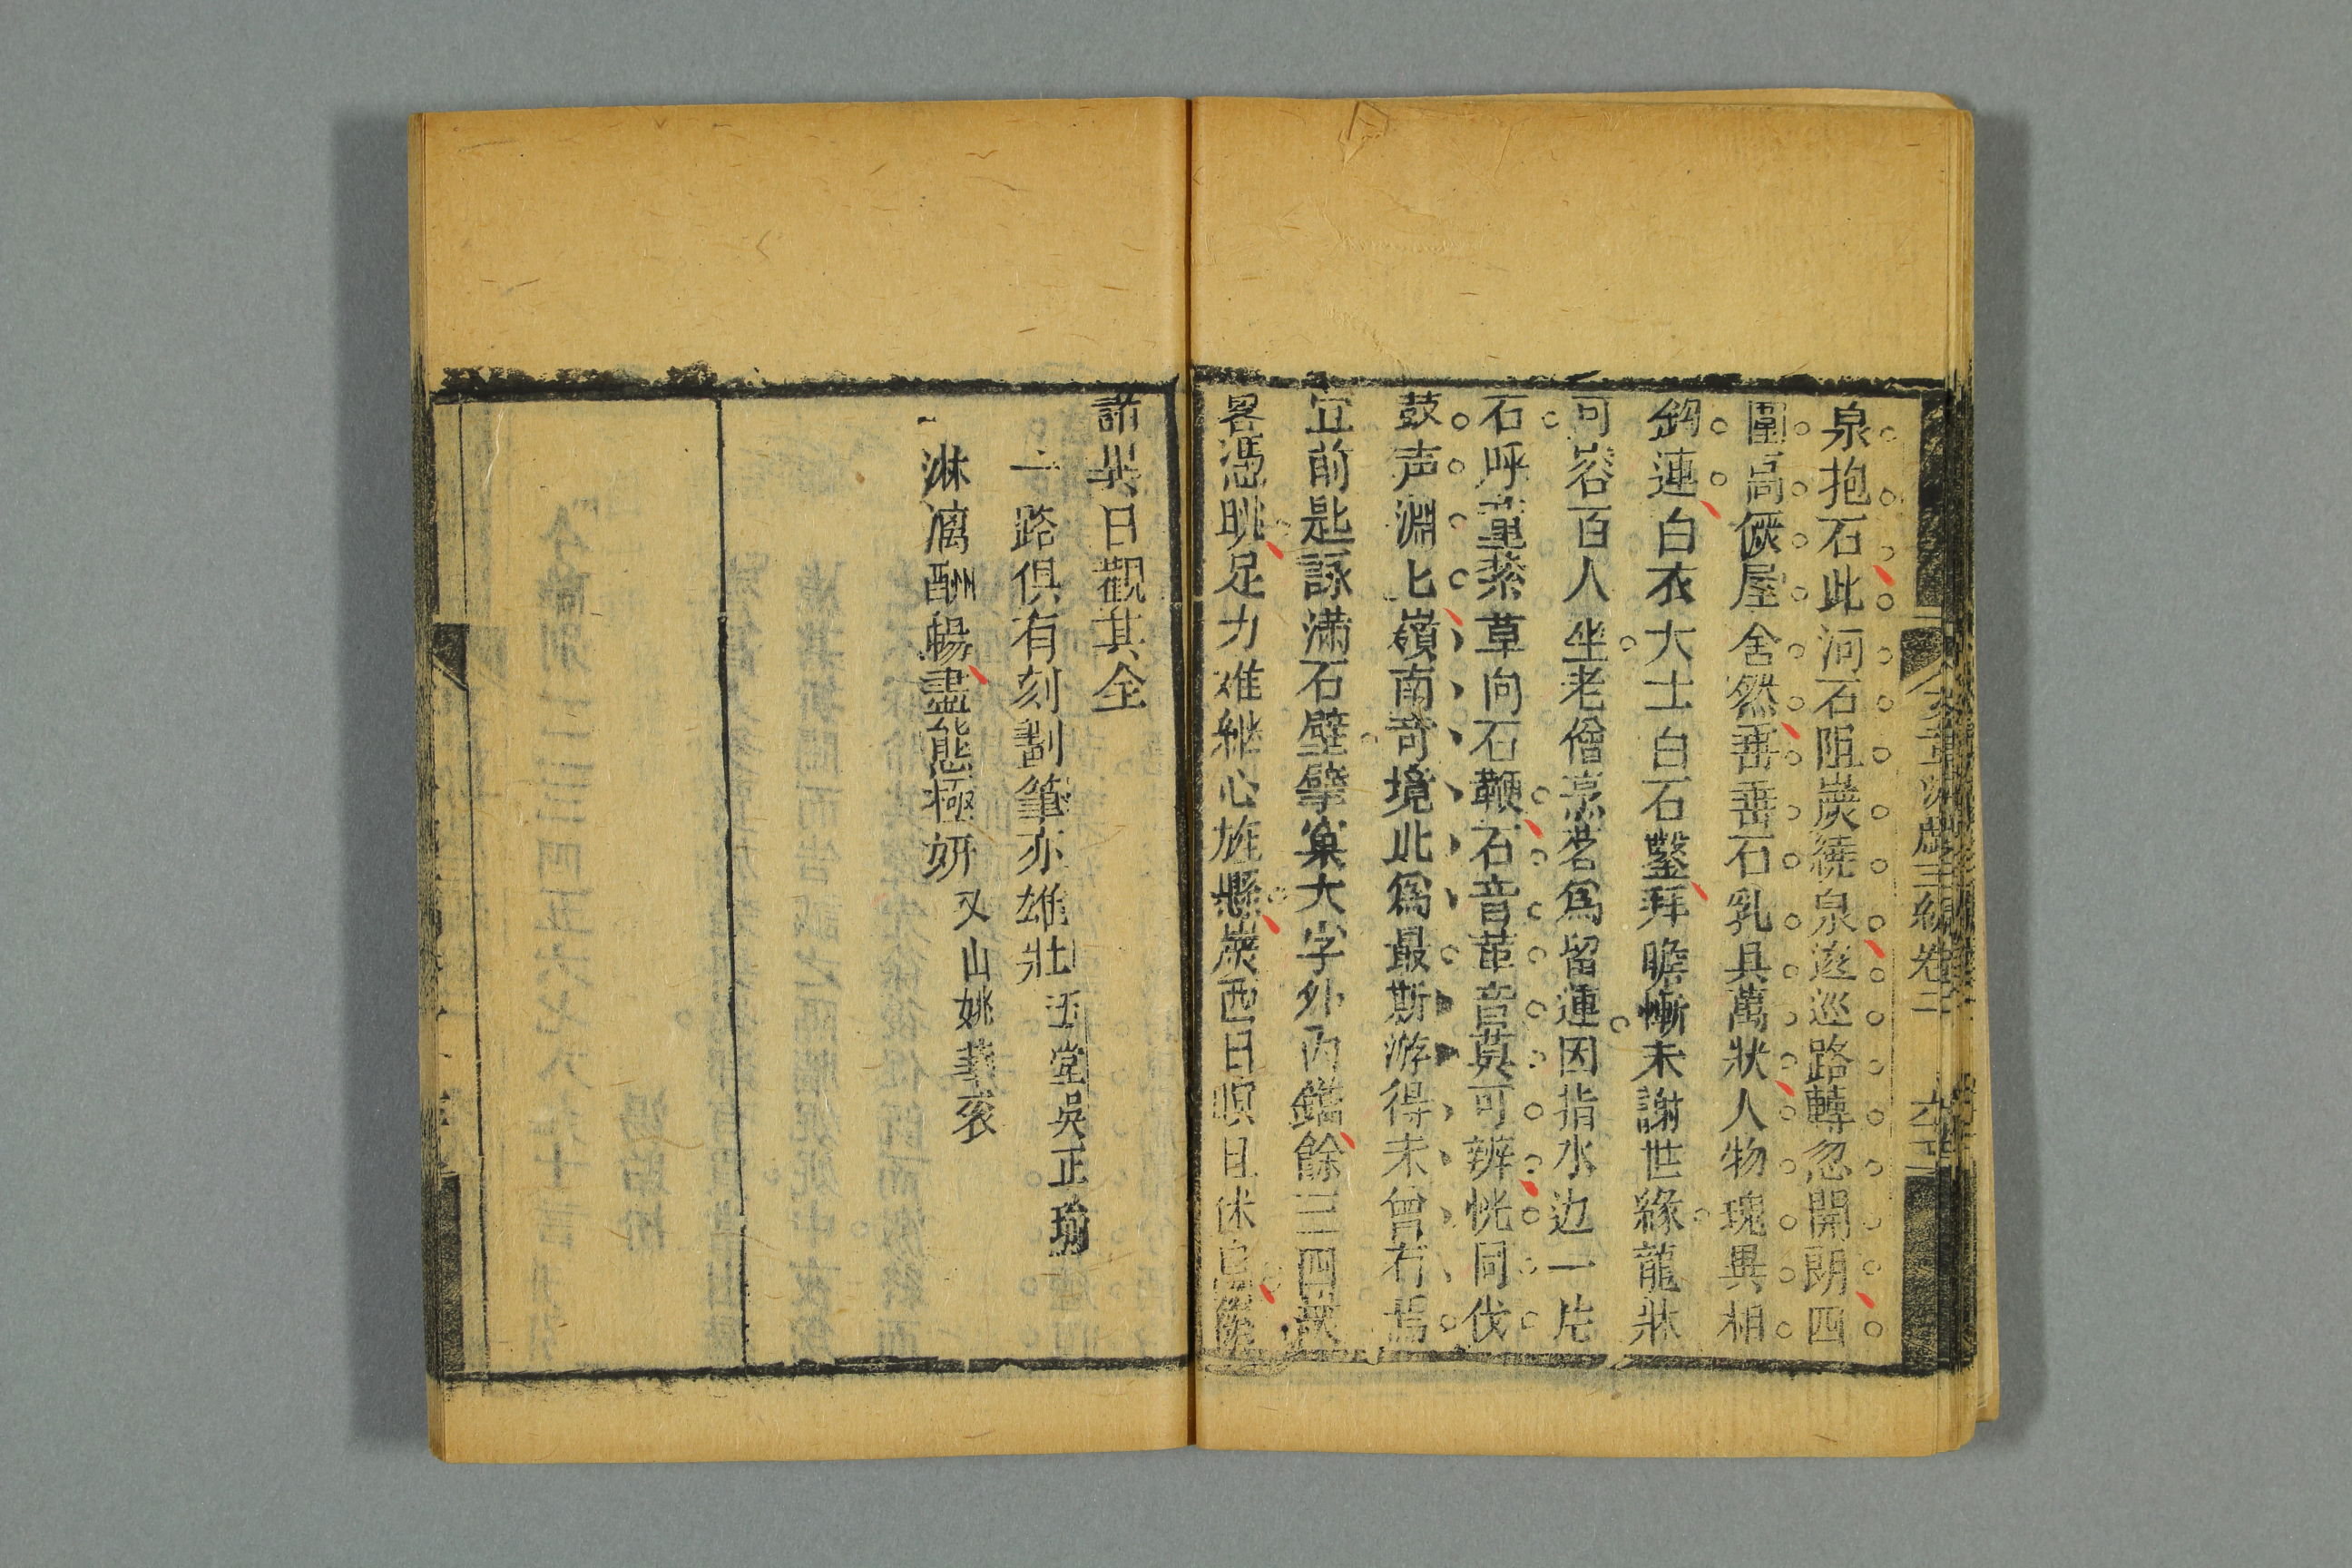 泉抱石此河石阻炭繞泉逡巡路轉忽開朗四
圍高𠊓屋舍然垂垂石乳具萬狀人物瑰異相
鈎連白衣大士白石鑿拜瞻慚未謝世緣龍牀
可容百人坐老僧烹茗爲留連因指水边一片
石呼菫紮草向石鞭石音革音莫可辨恍同伐
鼓声淵匕嶺南奇境此爲最斯游得未曾有焉
宜前匙詠滿石壁擘窠大字外內鐫餘三四
畧憑眺足力难継心旌懸炭西日暝且休息
諾與日觀其全
一路俱有刻劃筆亦雄壯 玉堂吳正瑜
淋漓酣暢盡態極妍 又山姚業裘
三編卷二